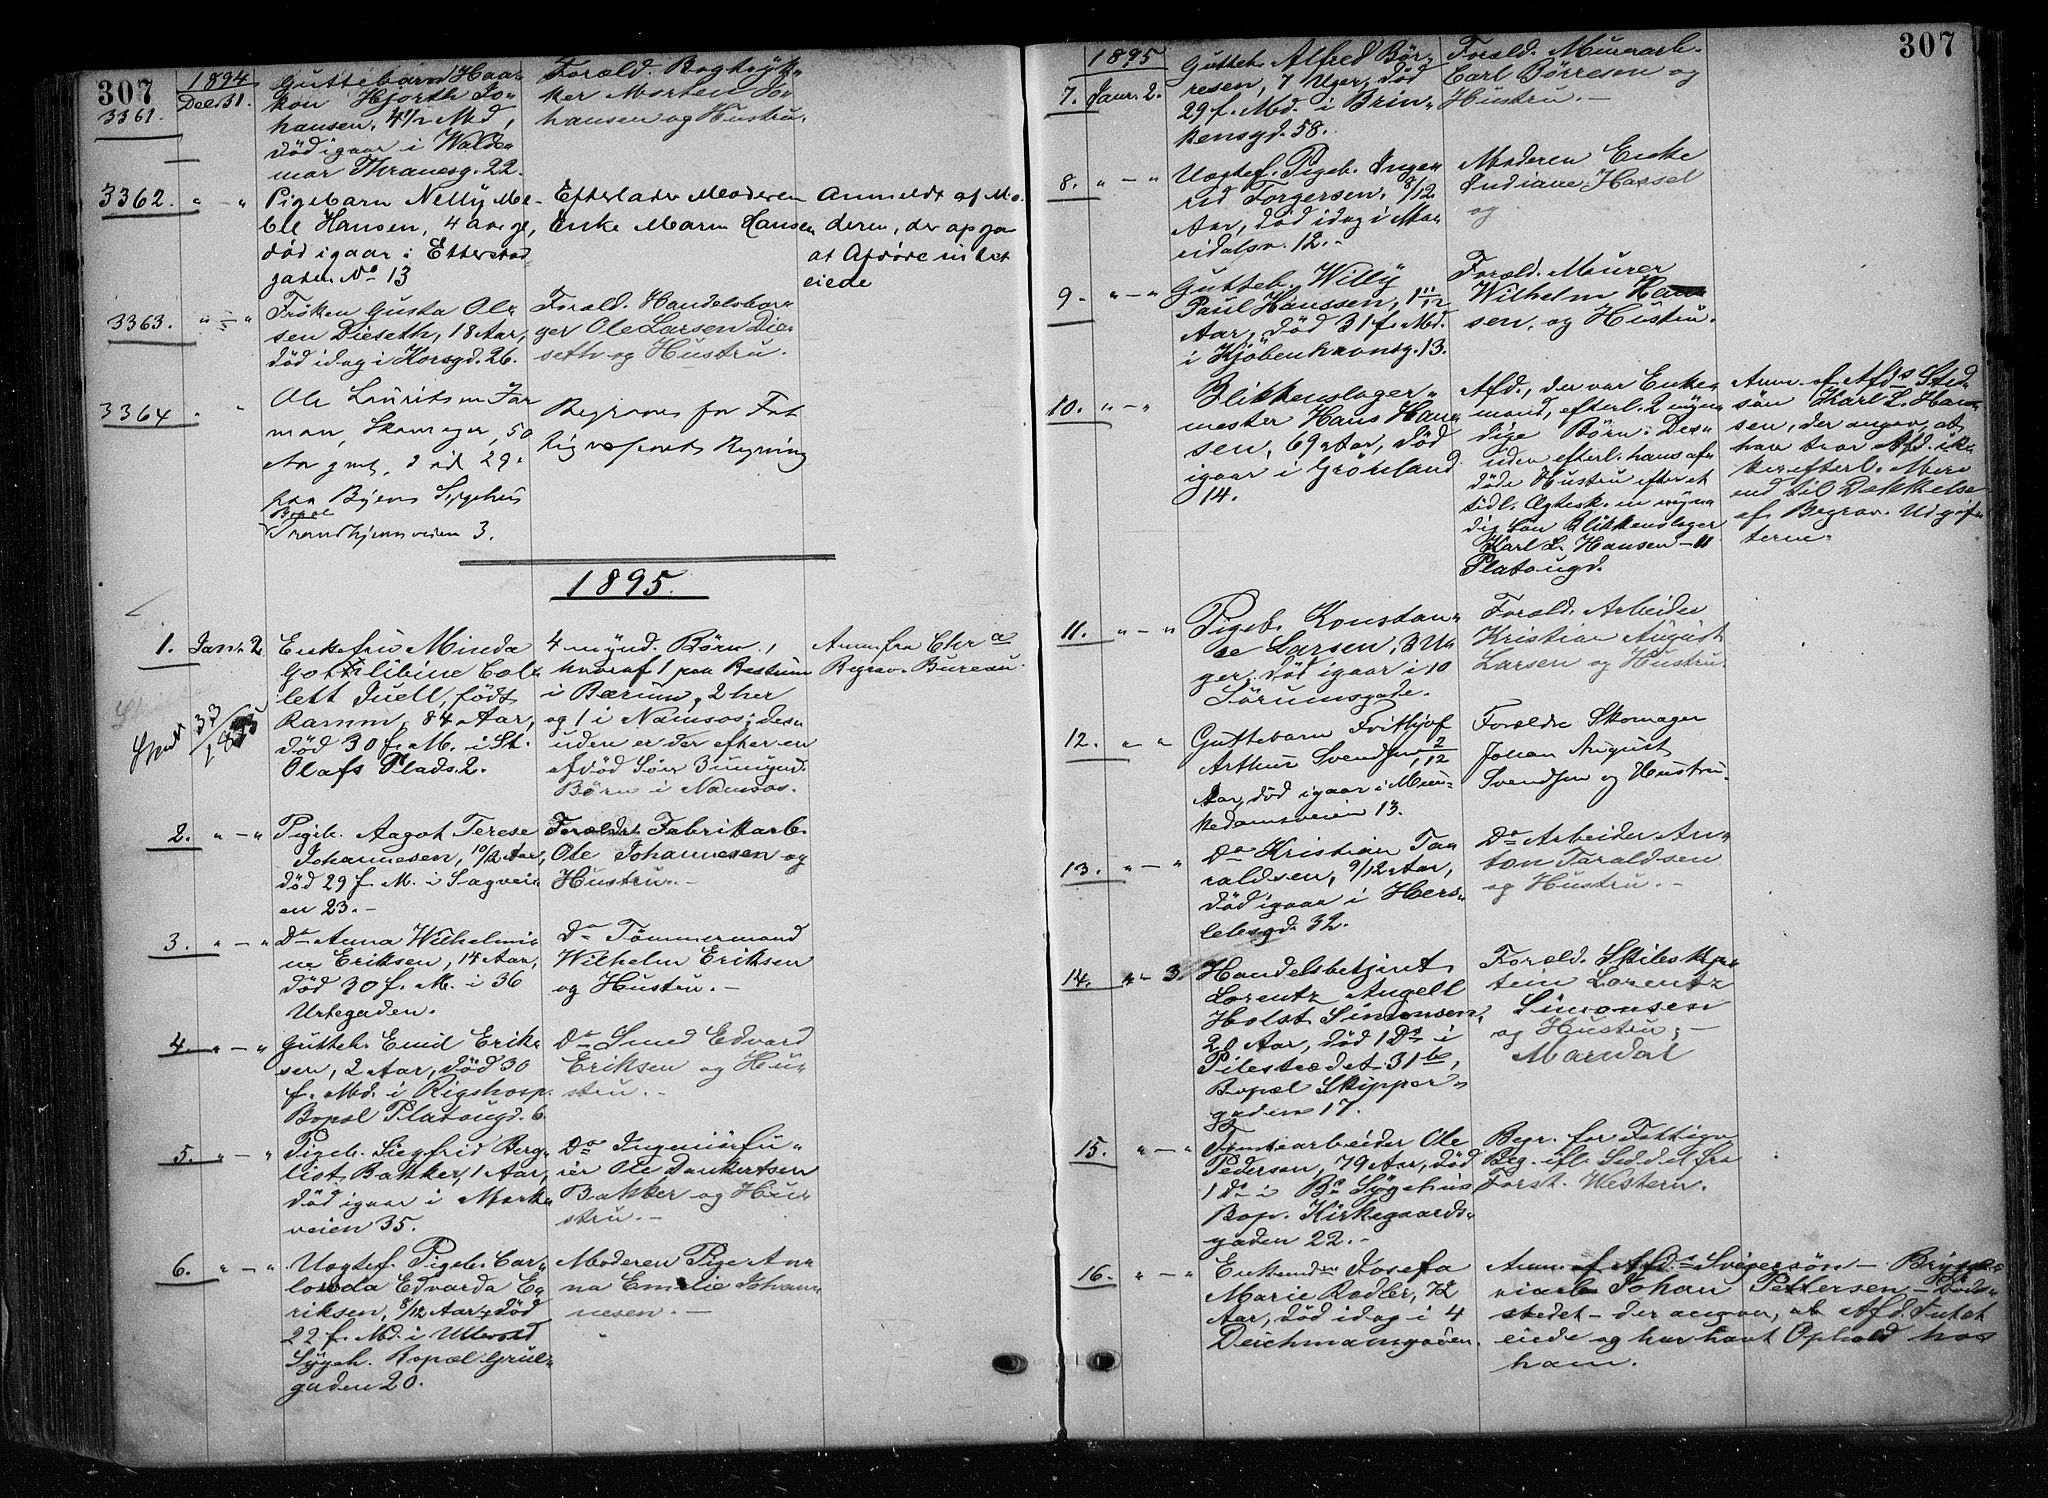 307
1894
3361. Dec. 31.
Guttebarn Haa-
kon Hjorth Jo-
hansen, 4½ Md,
død igaar i Walde-
mar Thranesg. 22.
Foræld. Bogtryk-
ker Morten Jo-
hansen og Hustru.
3362. " — "
Pigebarn Nelly
Hansen, 4 aar gl,
død igaar i Etterstad-
gaden No 13
Efterlader Moderen
Enke Marn Hansen
Anmeldt af Mo-
deren, der opga
at Afdøde intet
eiede
3363. " — "
Frøken Gusta Ol-
sen Dieseth, 18 Aar,
død idag i Korsgd. 26.
Foræld. Handelsbor-
ger Ole Larsen Die-
seth og Hustru.
3364 " "
Ole Lauritsen For-
man, Skomager, 50
Aar gml, død 29.
paa Byens Sygehus
Bopæl
Trondhjemsveien 3.
Begraves for Fat-
tigvæsenets Regning
1895.
1. Janr. 2.
Enkefru Minda
Gottlibine Col-
lett Juell, født
Ramm, 84 Aar,
død 30 f. M. i St.
Olafs Plads 2.
4 mynd. Børn,
hvoraf 1 paa Bestum
i Bærum, 2 her
og 1 i Namsos; des-
uden er der efter en
afdød Søn 3 umynd.
Børn i Namsos.
Anm. fra Chr a
Begrav. Bureau.
33/1895
2. " — "
Pigeb. Aagot Terese
Johannesen, 10/12 Aar,
død 29 f. M. i Sagvei-
en 23. —
Forældre Fabrikkarb.
Ole Johannesen og
Hustru. —
3. " — "
Do Anna Wilhelmi-
ne Eriksen, 14 Aar,
død 30 f. M. i 36
Urtegaden.
Do Tømmermand
Wilhelm Eriksen
og Hustru. —
4. " — "
Gutteb. Emil Erik-
sen, 2 Aar, død 30
f. Md. i Rigshosp.
Bopæl Platougd. 6.
Do Smed Edvard
Eriksen og Hu-
stru. —
5. " — "
Pigeb. Siegfrid Berg-
liot Bakker, 1 Aar,
død igaar i Mark-
veien 35.
Do Ingeniørfu-
ier Ole Dankertsen
Bakker og Hu-
stru. —
6. " — "
Uægtef. Pigeb. Car-
londa Edvarda E-
riksen, 8/12 Aar, død
22 f. Md. i Ullevold
Sygeh. Bopæl Grü-
gaden 20.
Moderen Pige An-
na Emelie Johan-
nesen. —
307
1895
7. Janr. 2.
Gutteb. Alfred Bør-
resen, 7 Uger, død
29 f. Md. i Brin-
kensgd. 58.
Foræld. Murerarb.
Carl Børresen og
Hustru. —
8. " — "
Uægtef. Pigeb. Inge-
rid Torgersen, 8/12
Aar, død idag i Ma-
ridalsv. 12. -
Moderen Enke
Indiane Hassel
og
9. " — "
Gutteb. Willy
Paul Hanssen, 1 11/12
Aar, død 31 f. Md.
i Kjøbenhavnsg. 13.
Foræld. Maurer
Wilhelm Han-
sen, og Hustru.
10. " — "
Blikkenslager-
mester Hans Han-
sen, 69 Aar, død
igaar i Grønland
14.
Afd., der var Enke-
mand, efterl. 2 myn-
dige Børn. Des-
uden efterl. hans af-
døde Hustru efter et
tidl. Ægtesk. en myn-
dig Søn Blikkenslager
Karl L. Hansen — 11
Platougd.
Anm. af Afd's Sted-
søn Karl L. Han-
sen, der angav, at
han tror Afd. ik-
ke efterl. Mere
end til Dækkelse
af Begrav. Udgif-
terne.
11. " — "
Pigeb. Konstan-
se Larsen, 3 U-
ger, død igaar i 10
Sørumsgade.
Foræld. Arbeider
Kristian August
Larsen og Hustru
12. " — "
Guttebarn Frithjof
Arthur Svendsen, 1 2/12
Aar, død igaar i Mun-
kedamsveien 13.
Forældre Skomager
Johan August
Svendsen og Hustru.
13. " — "
Do Kristian Ta-
raldsen, 9/12 Aar,
død igaar i Hers-
lebsgd. 32.
Do Arbeider An-
ton Taraldsen
og Hustru. —
14. " 3.
Handelsbetjent
Lorentz Angell
Holst Simonsen,
20 Aar, død 1 Ds i
Pilestrædet 31 b,
Bopæl Skipper-
gaden 17.
Foræld. Skibskap-
tein Lorentz
Simonsen
og Hustru, —
Mandal
15. " — "
Tomtearbeider Ole
Pedersen, 79 Aar, død
1 Ds i Bs Sygehus
Bop. Kirkegaards-
gaden 22. —
Begr. for Fattigv.
Reg. ifl. Seddel fra
Forst. Western.
16. " — "
Enkemd Josefa
Marie Radler, 72
Aar, død idag i 4
Deichmansgaden.
Anm. af Afd.s Svigersøn — Brygge-
riarb. Johan Pettersen — Døds-
stedet — der angav, at Afd. Intet
eiede og har havt Ophold hos
ham.